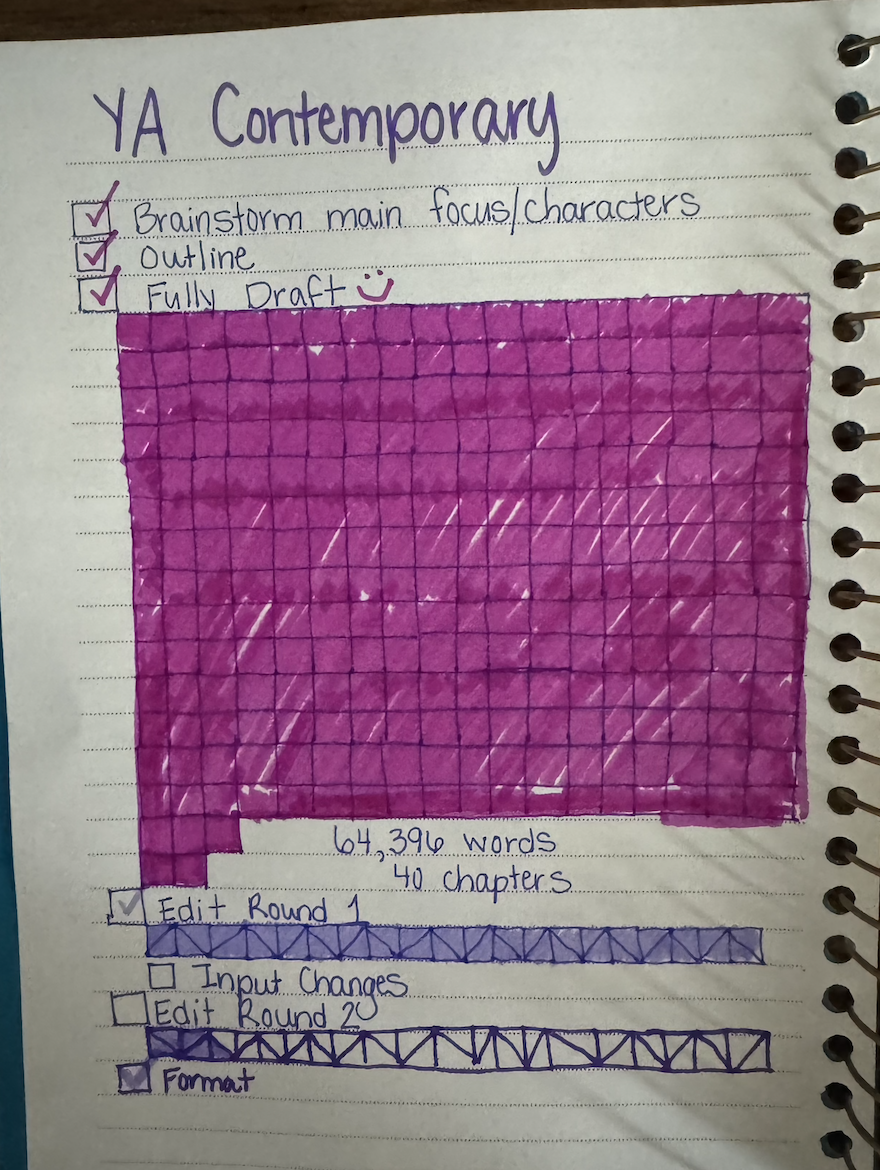 YA Contemporary
Brainstorm main focus/characters
Outline
Fully Draft
64,396 words
40 chapters
Edit Round 1
Input Changes
Edit Round 2
Format